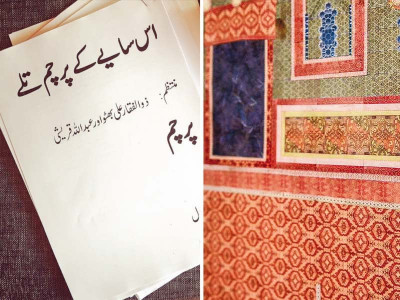 اس سایے کے پرچم تلے
منتظم: ذوالفقار علی بھٹو اور عبداللہ قریشی
پرچم
ل